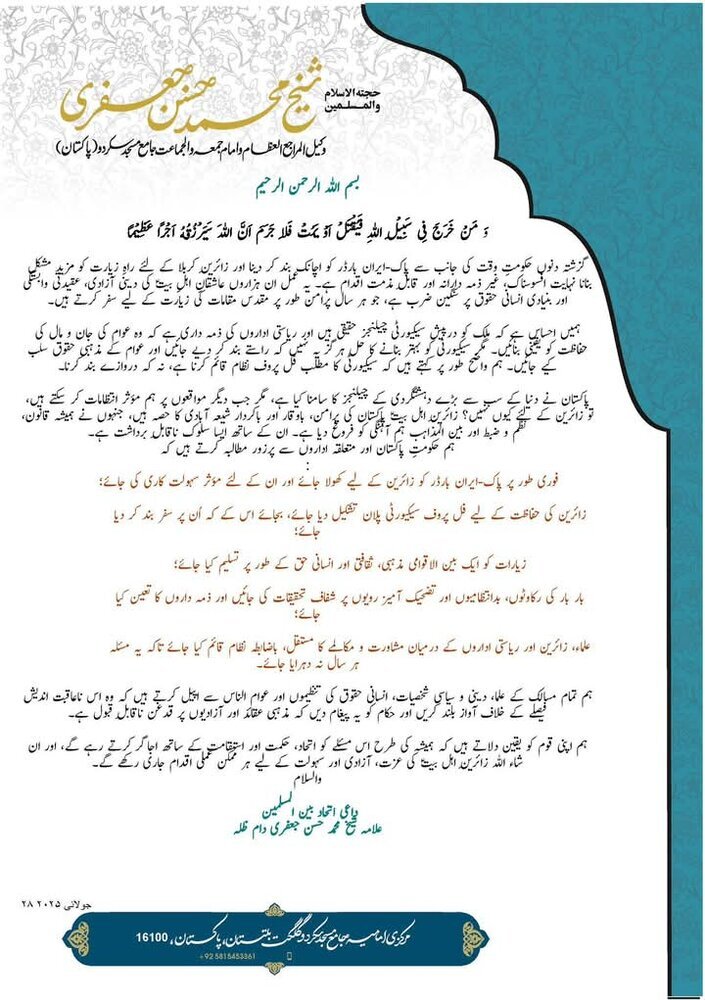 حجتہ الاسلام
والمسلمین
شیخ محمد حسن جعفری
وکیل المراجع العظام و امام جمعہ والجماعت جامع مسجد سکردو (پاکستان)
بسم اللہ الرحمن الرحیم
وَ مَنْ خَرَجَ فِی سَبِیْلِ اللہِ فَیُقْتَلْ اَوْ یَمُتْ فَلَا جَرَمَ اَنَّ اللہَ سَیَرْزُقُهُ اَجْرًا عَظِیْمًا
گزشتہ دنوں حکومتِ وقت کی جانب سے پاک-ایران بارڈر کو اچانک بند کر دینا اور زائرین کربلا کے لئے راہِ زیارت کو مزید مشکل
بنانا نہایت افسوسناک، غیر ذمہ دارانہ اور قابلِ مذمت اقدام ہے۔ یہ عمل ان ہزاروں عاشقانِ اہلِ بیتؑ کی دینی آزادی، عقیدتی وابستگی
اور بنیادی انسانی حقوق پر سنگین ضرب ہے، جو ہر سال پرامن طور پر مقدس مقامات کی زیارت کے لیے سفر کرتے ہیں۔
ہمیں احساس ہے کہ ملک کو درپیش سیکیورٹی چیلنجز حقیقی ہیں اور ریاستی اداروں کی ذمہ داری ہے کہ وہ عوام کی جان و مال کی
حفاظت کو یقینی بنائیں۔ مگر سیکیورٹی کو بہتر بنانے کا حل ہرگز یہ نہیں کہ راستے بند کر دیے جائیں اور عوام کے مذہبی حقوق سلب
کیے جائیں۔ ہم واضح طور پر کہتے ہیں کہ سیکیورٹی کا مطلب فل پروف نظام قائم کرنا ہے، نہ کہ دروازے بند کرنا۔
پاکستان نے دنیا کے سب سے بڑے دہشتگردی کے چیلنجز کا سامنا کیا ہے، مگر جب دیگر مواقعوں پر ہم مؤثر انتظامات کر سکتے ہیں،
تو زائرین کے لئے کیوں نہیں؟ زائرینِ اہل بیتؑ پاکستان کی پرامن، باوقار اور باکردار شیعہ آبادی کا حصہ ہیں، جنہوں نے ہمیشہ قانون،
نظم و ضبط اور بین المذاہب ہم آہنگی کو فروغ دیا ہے۔ ان کے ساتھ ایسا سلوک ناقابلِ برداشت ہے۔
ہم حکومتِ پاکستان اور متعلقہ اداروں سے پرزور مطالبہ کرتے ہیں کہ
:
فوری طور پر پاک-ایران بارڈر کو زائرین کے لیے کھولا جائے اور ان کے لئے مؤثر سہولت کاری کی جائے؛
زائرین کی حفاظت کے لیے فل پروف سیکیورٹی پلان تشکیل دیا جائے، بجائے اس کے کہ اُن پر سفر بند کر دیا
جائے؛
زیارات کو ایک بین الاقوامی مذہبی، ثقافتی اور انسانی حق کے طور پر تسلیم کیا جائے؛
بار بار کی رکاوٹوں، بدانتظامیوں اور تضحیک آمیز رویوں پر شفاف تحقیقات کی جائیں اور ذمہ داروں کا تعین کیا
جائے؛
علماء، زائرین اور ریاستی اداروں کے درمیان مشاورت و مکالمے کا مستقل، باضابطہ نظام قائم کیا جائے تاکہ یہ مسئلہ
ہر سال نہ دہرایا جائے۔
ہم تمام مسالک کے علماء، دینی و سیاسی شخصیات، انسانی حقوق کی تنظیموں اور عوام الناس سے اپیل کرتے ہیں کہ وہ اس ناعاقبت اندیش
فیصلے کے خلاف آواز بلند کریں اور حکام کو یہ پیغام دیں کہ مذہبی عقائد اور آزادیوں پر قدغن ناقابلِ قبول ہے۔
ہم اپنی قوم کو یقین دلاتے ہیں کہ ہمیشہ کی طرح اس مسئلے کو اتحاد، حکمت اور استقامت کے ساتھ اجاگر کرتے رہے گے، اور ان
شاء اللہ زائرینِ اہل بیتؑ کی عزت، آزادی اور سہولت کے لیے ہر ممکن عملی اقدام جاری رکھے گے۔
والسلام
داعی اتحاد بین المسلمین
علامہ شیخ محمد حسن جعفری دام ظلہ
جولائی ۲۰۲۵ ۲۸
مرکزی امامیہ جامع مسجد سکردو گلگت بلتستان، پاکستان، 16100
+92 5815453361